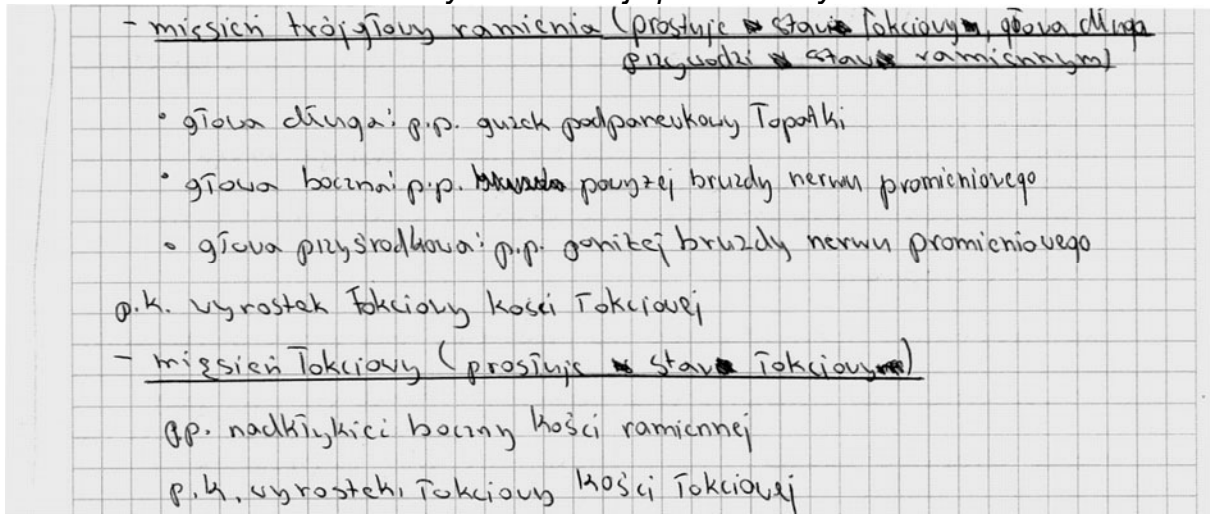 - mięsień trójgłowy ramienia (prostuje staw łokciowy, głowa długa
przywodzi staw ramiennym)
• głowa długa: p.p. guzek podpanewkowy łopatki
• głowa boczna: p.p. powyżej bruzdy nerwu promieniowego
• głowa przyśrodkowa: p.p. poniżej bruzdy nerwu promieniowego
p.k. wyrostek łokciowy kości łokciowej
- mięsień łokciowy (prostuje staw łokciowy)
p.p. nadkłykieć boczny kości ramiennej
p.k. wyrostek łokciowy kości łokciowej